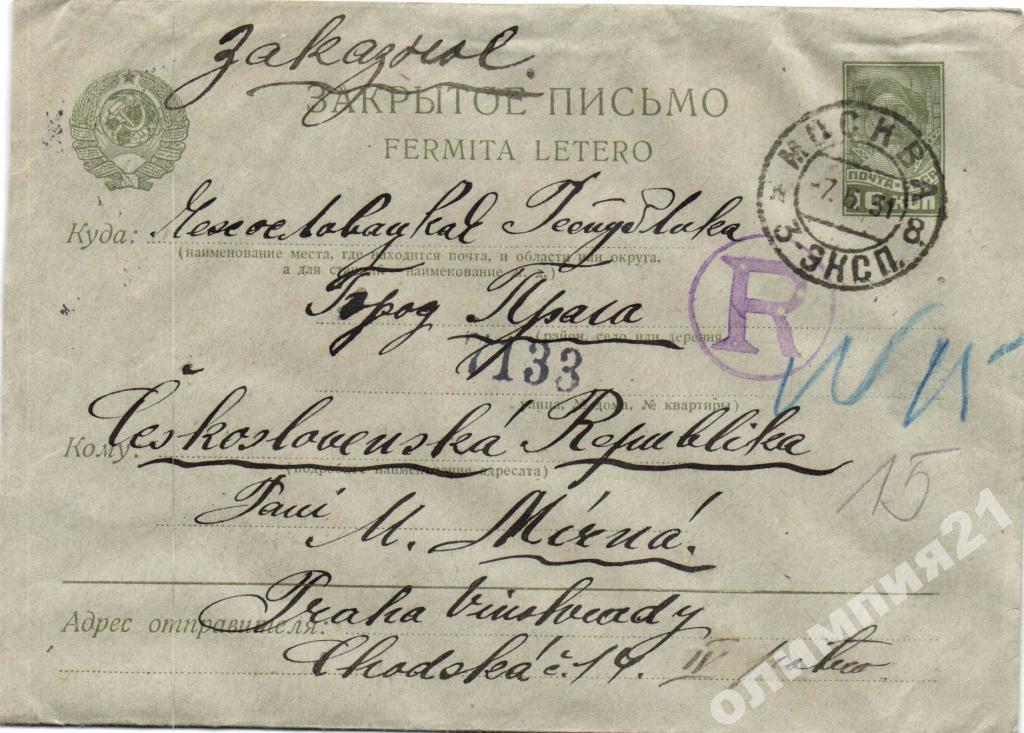 Заказное.
ЗАКРЫТОЕ ПИСЬМО
FERMITA LETERO
МОСКВА 8
-7. 6. 31
3-ЭКСП.
ПОЧТА
Куда: Чехословацкая Республика
(наименование места, где находится почта, и области или округа,
а для станций наименование ж. д.)
Город Прага
(район, село или деревня
R
7133
улица, № дома, № квартиры)
Československá Republika
Кому:
(подробное наименование адресата)
Paní
M. Mírná.
Praha Vinohrady
Адрес отправителя:
Chodská č. 17. IV
15
олимпия21